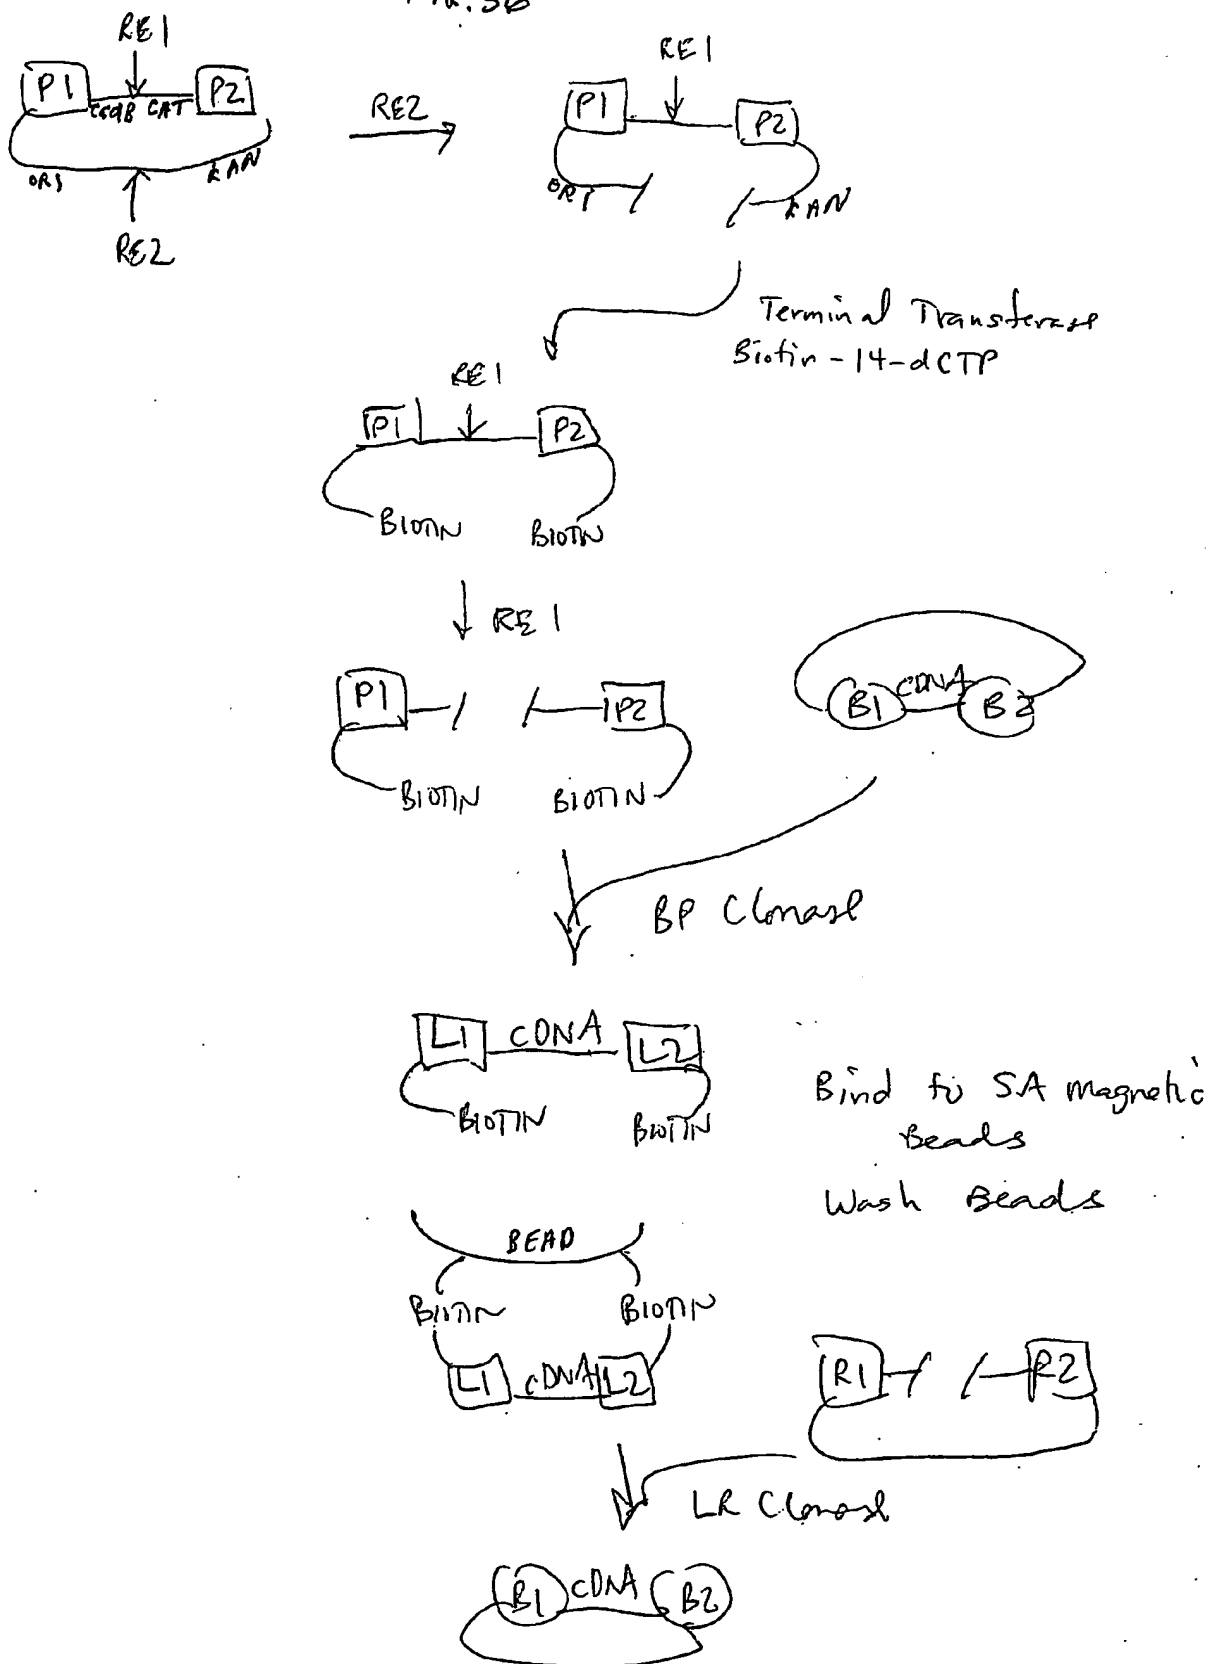 RE1
P1 ccdB CAT P2
ORI KAN
RE2
RE2
RE1
P1 P2
ORI KAN
Terminal Transferase
Biotin-14-dCTP
RE1
P1 P2
BIOTIN BIOTIN
RE1
P1 P2
BIOTIN BIOTIN
B1 cDNA B2
BP Clonase
L1 cDNA L2
BIOTIN BIOTIN
Bind to SA magnetic
Beads
Wash Beads
BEAD
BIOTIN BIOTIN
L1 cDNA L2
R1 R2
LR Clonase
B1 cDNA B2